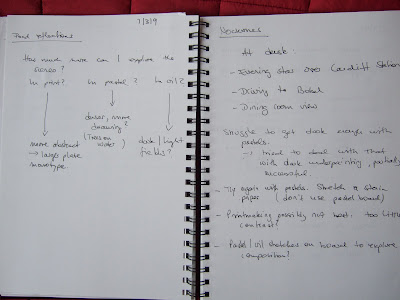 7/2/9
Pond reflections
How much more can I explore the
series?
In print? In pastel? In oil?
looser, more
drawing?
(Trees on
water)
more abstract
→ large plate
monotype.
dark/light
fields?
Nocturnes
At dusk:
- Evening star over Cardiff Station
- Driving to
- Dining room view
Struggle to get dark enough with
pastels.
- I tried to deal with that
with dark underpainting, partially
successful.
- Try again with pastels. Stretch & stain
paper (don't use pastel board)
- Printmaking possibly not best. too little
contrast?
- Pastel/oil sketches on board to explore
composition?